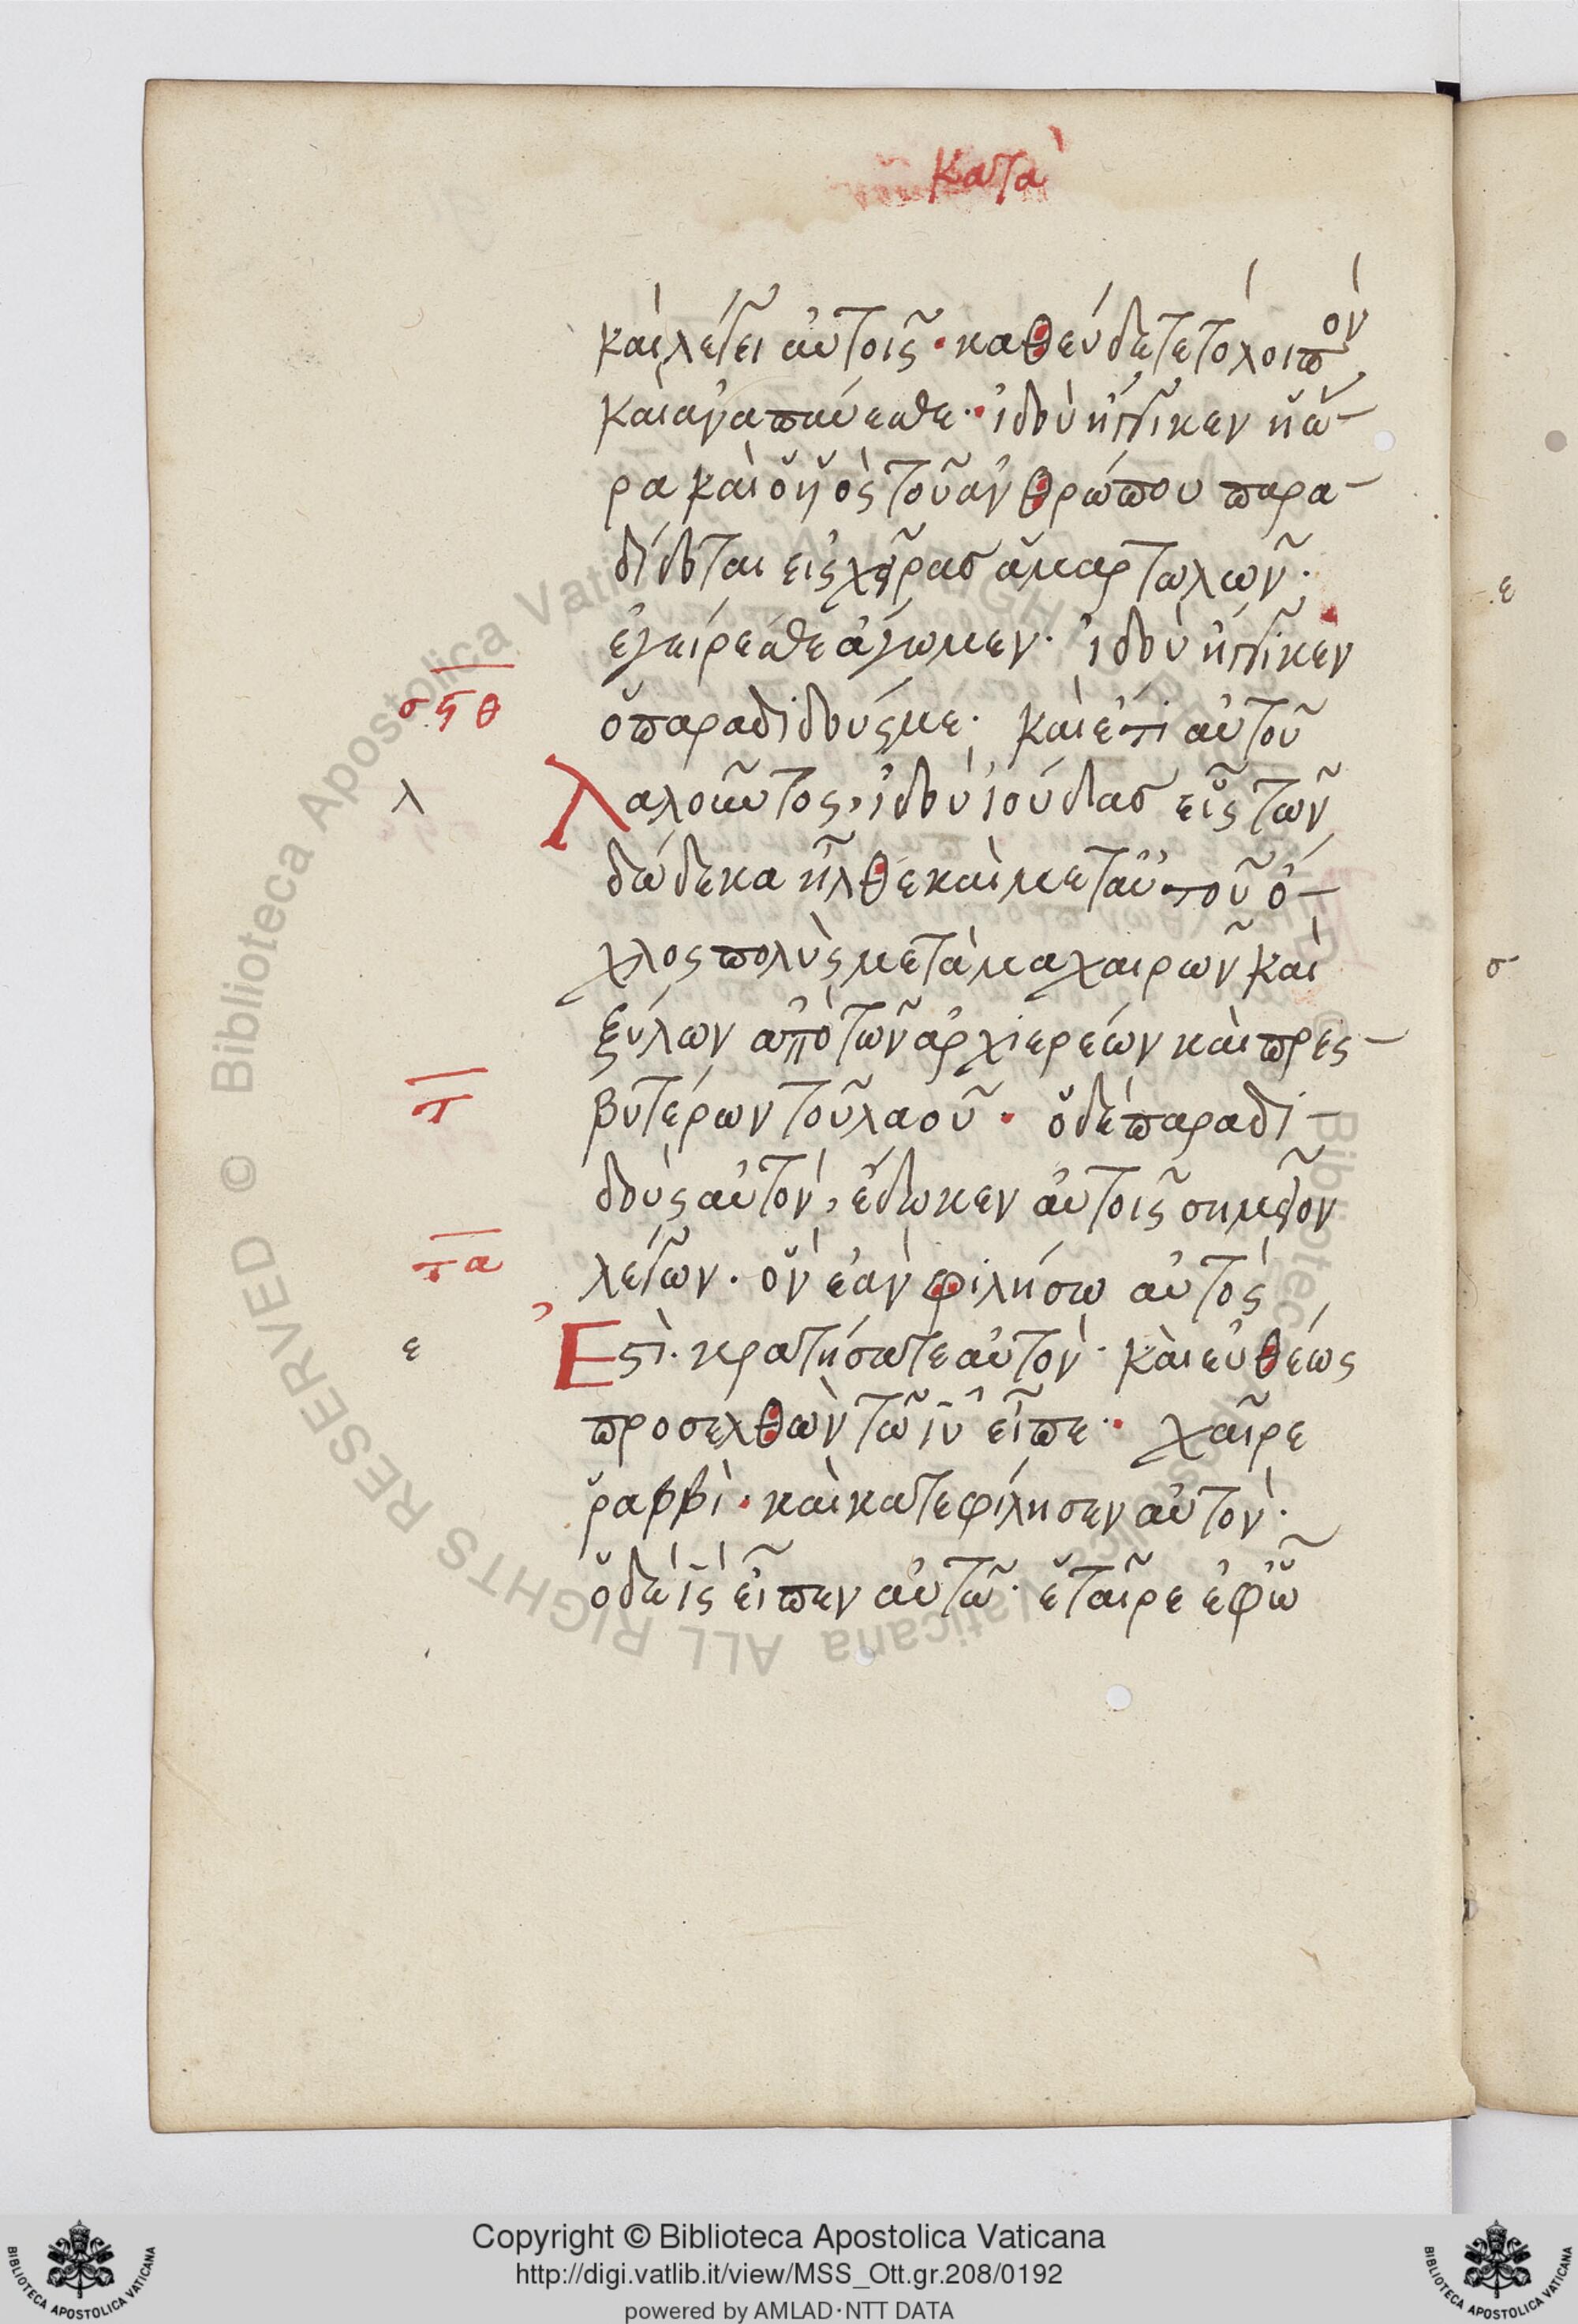 κατὰ
καὶ λέγει αὐτοῖς· καθεύδετε τὸ λοιπὸν
καὶ ἀναπαύεσθε· ἰδοὺ ἤγγικεν ἡ ὥ-
ρα καὶ ὁ ὑιὸς τοῦ ἀνθρώπου παρα-
δίδοται εἰς χεῖρασ ἁμαρτωλῶν·
ἐγείρεσθε ἄγωμεν· ἰδοὺ ἤγγικεν
σϟθ ὁ παραδιδούς με· καὶ ἔτι αὐτοῦ
λ Λαλοῦντος, ἰδοὺ ἰούδασ εἷς τῶν
δώδεκα ἦλθε καὶ μετ αὐτοῦ ὄ-
χλος πολὺς μετὰ μαχαιρῶν καὶ
ξύλων ἀπὸ τῶν ἀρχιερέων καὶ πρες-
τ βυτέρων τοῦ λαοῦ· ὁ δὲ παραδι-
δοὺς αὐτὸν, ἔδωκεν αὐτοῖς σημεῖον
τα λέγων· ὃν ἐὰν φιλήσω αὐτός
ε Ἐστὶ· κρατήσατε αὐτόν· καὶ εὐθέως
προσελθὼν τῶ ιυ εἶπε· χαῖρε
ῥαββὶ· καὶ κατεφίλησεν αὐτόν·
ὁ δὲ ις εἶπεν αὐτῶ· ἑταῖρε ἐφ ὧ
ε
σ
Copyright © Biblioteca Apostolica Vaticana
http://digi.vatlib.it/view/MSS_Ott.gr.208/0192
powered by AMLAD·NTT DATA
BIBLIOTECA APOSTOLICA VATICANA
BIBLIOTECA APOSTOLICA VATICANA